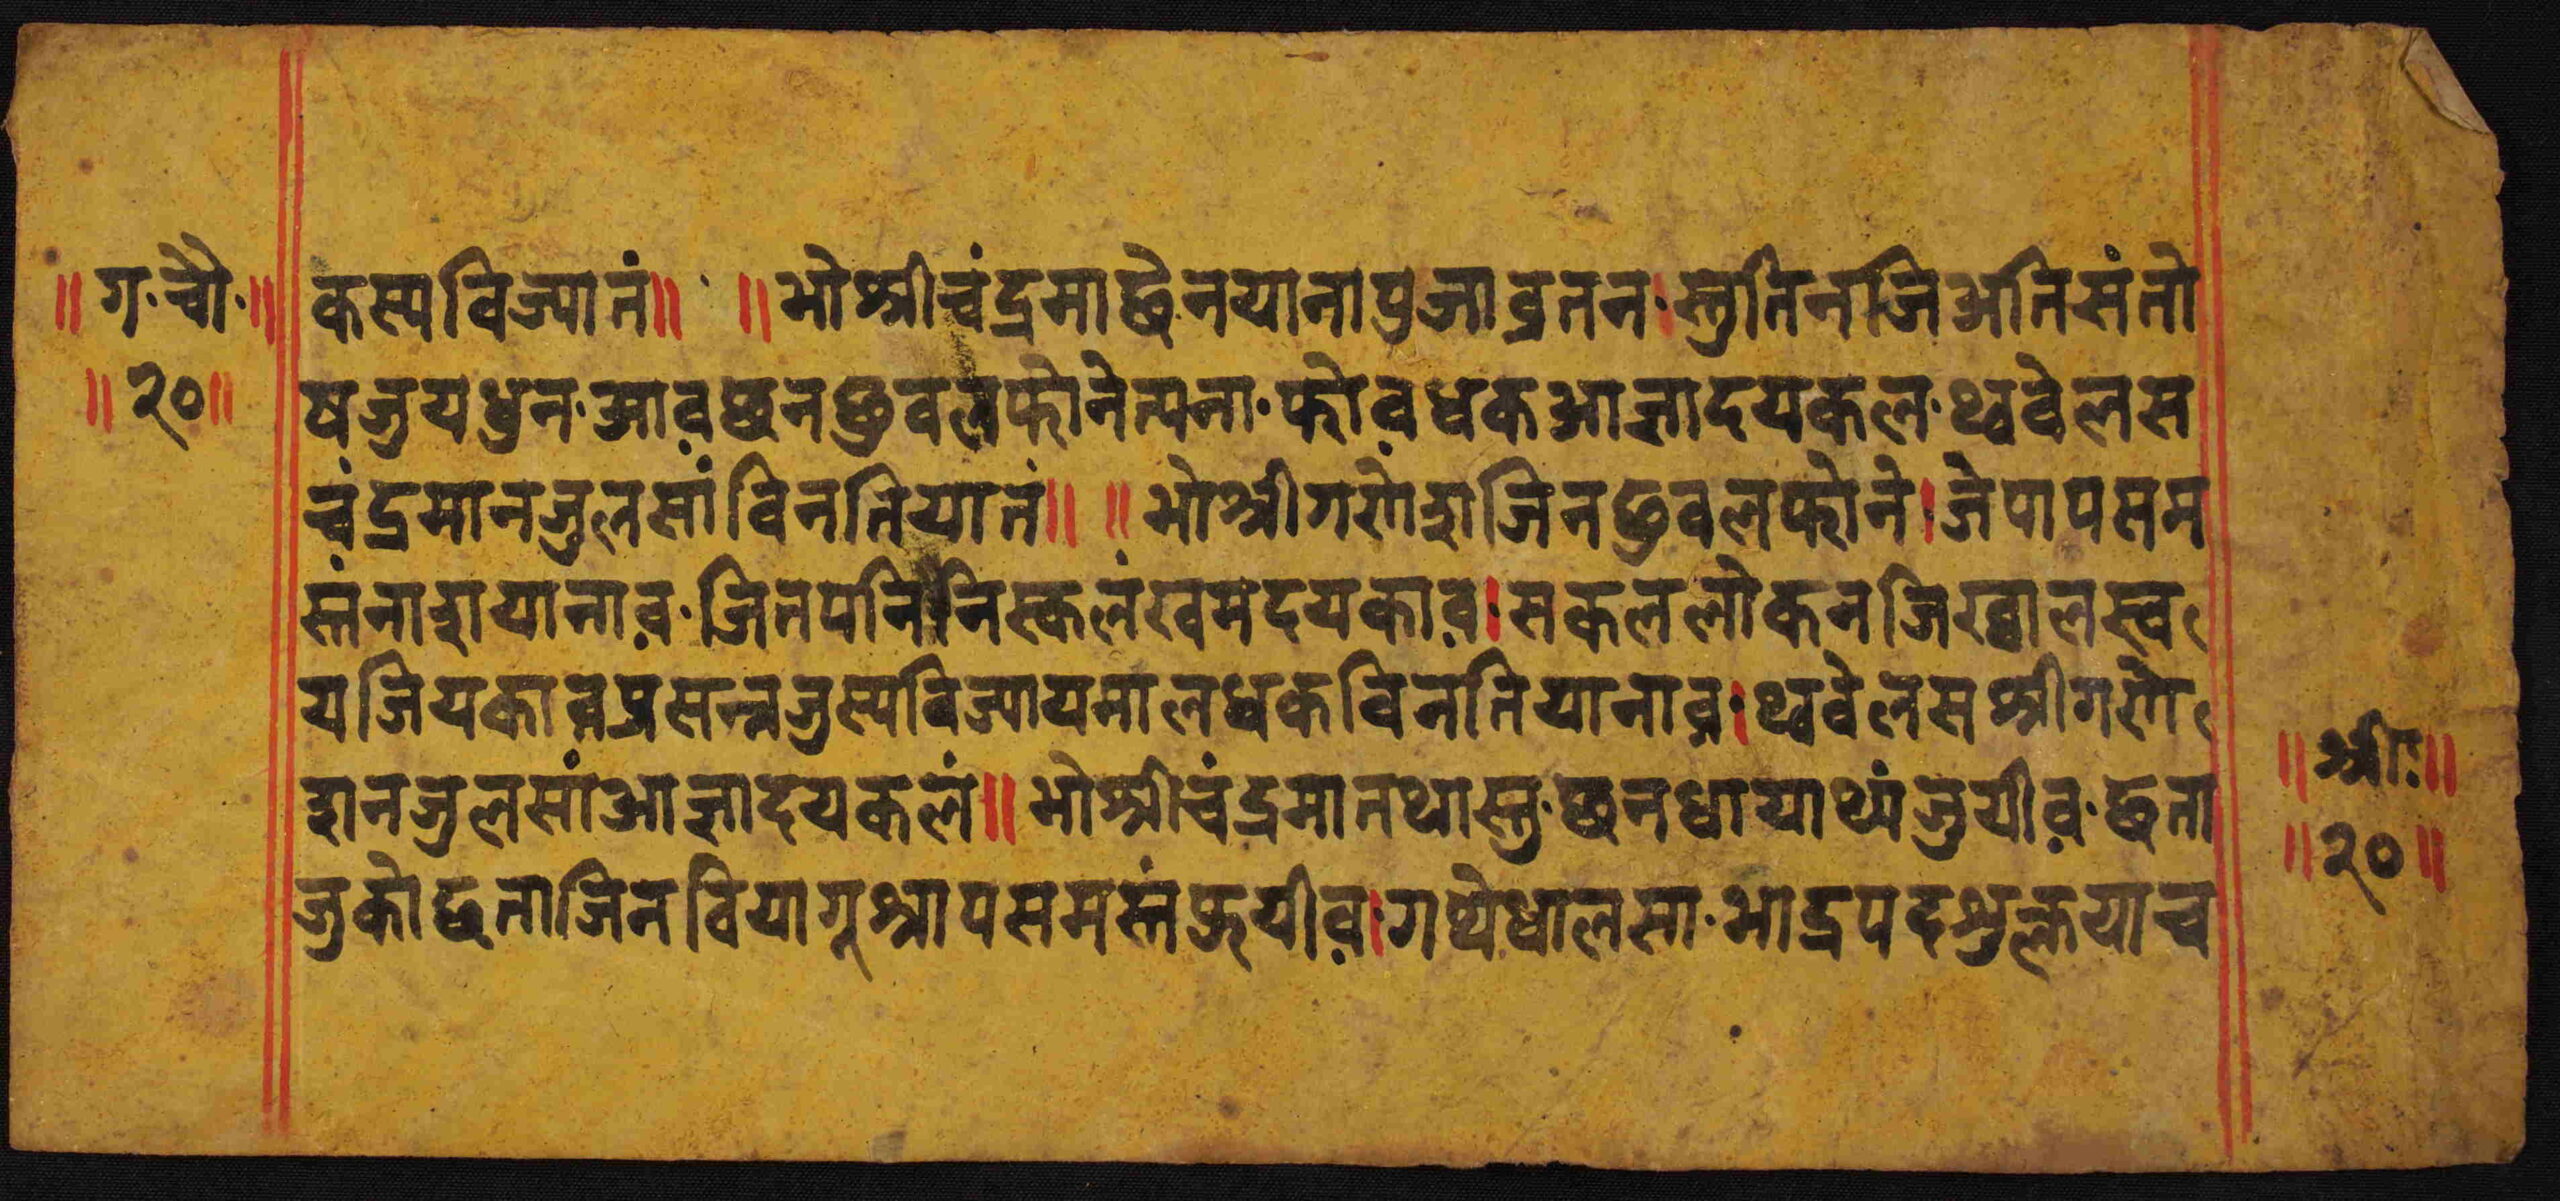 ॥ ग·चौ·॥
॥ २० ॥
कस्य विज्यातं॥ ॥ भो श्रीचंद्रमा छेनयाना पुजा व्रतन। स्तुतिन जि अति संतो
ष जुय धुन·आव़ छन छु वल फोने त्यना·फोव़ धक आज्ञा दयकल·थ्व वेलस
चंद्रमान जुलसां विनति यातं॥ ॥ भो श्रीगणेश जिन छु वल फोने। जे पाप सम
स्तं नाश यानाव़·जित पनि निस्कलंख म दयकाव़। सकल लोकन जि ख्वाल स्व
य जियकाव़ प्रसन्न जुस्य विज्याय माल धक विनति यानाव़। थ्व वेलस श्रीगणे
शन जुलसां आज्ञा दयकलं॥ भो श्रीचंद्रमा तथास्तु·छन धाया थ्यं जुयीव़·छता
जुको छता जिन विया गू श्राप समस्तं फुयीव़। गथे धालसा·भाद्रपद शुक्लया च
॥ श्रीः ॥
॥ २० ॥